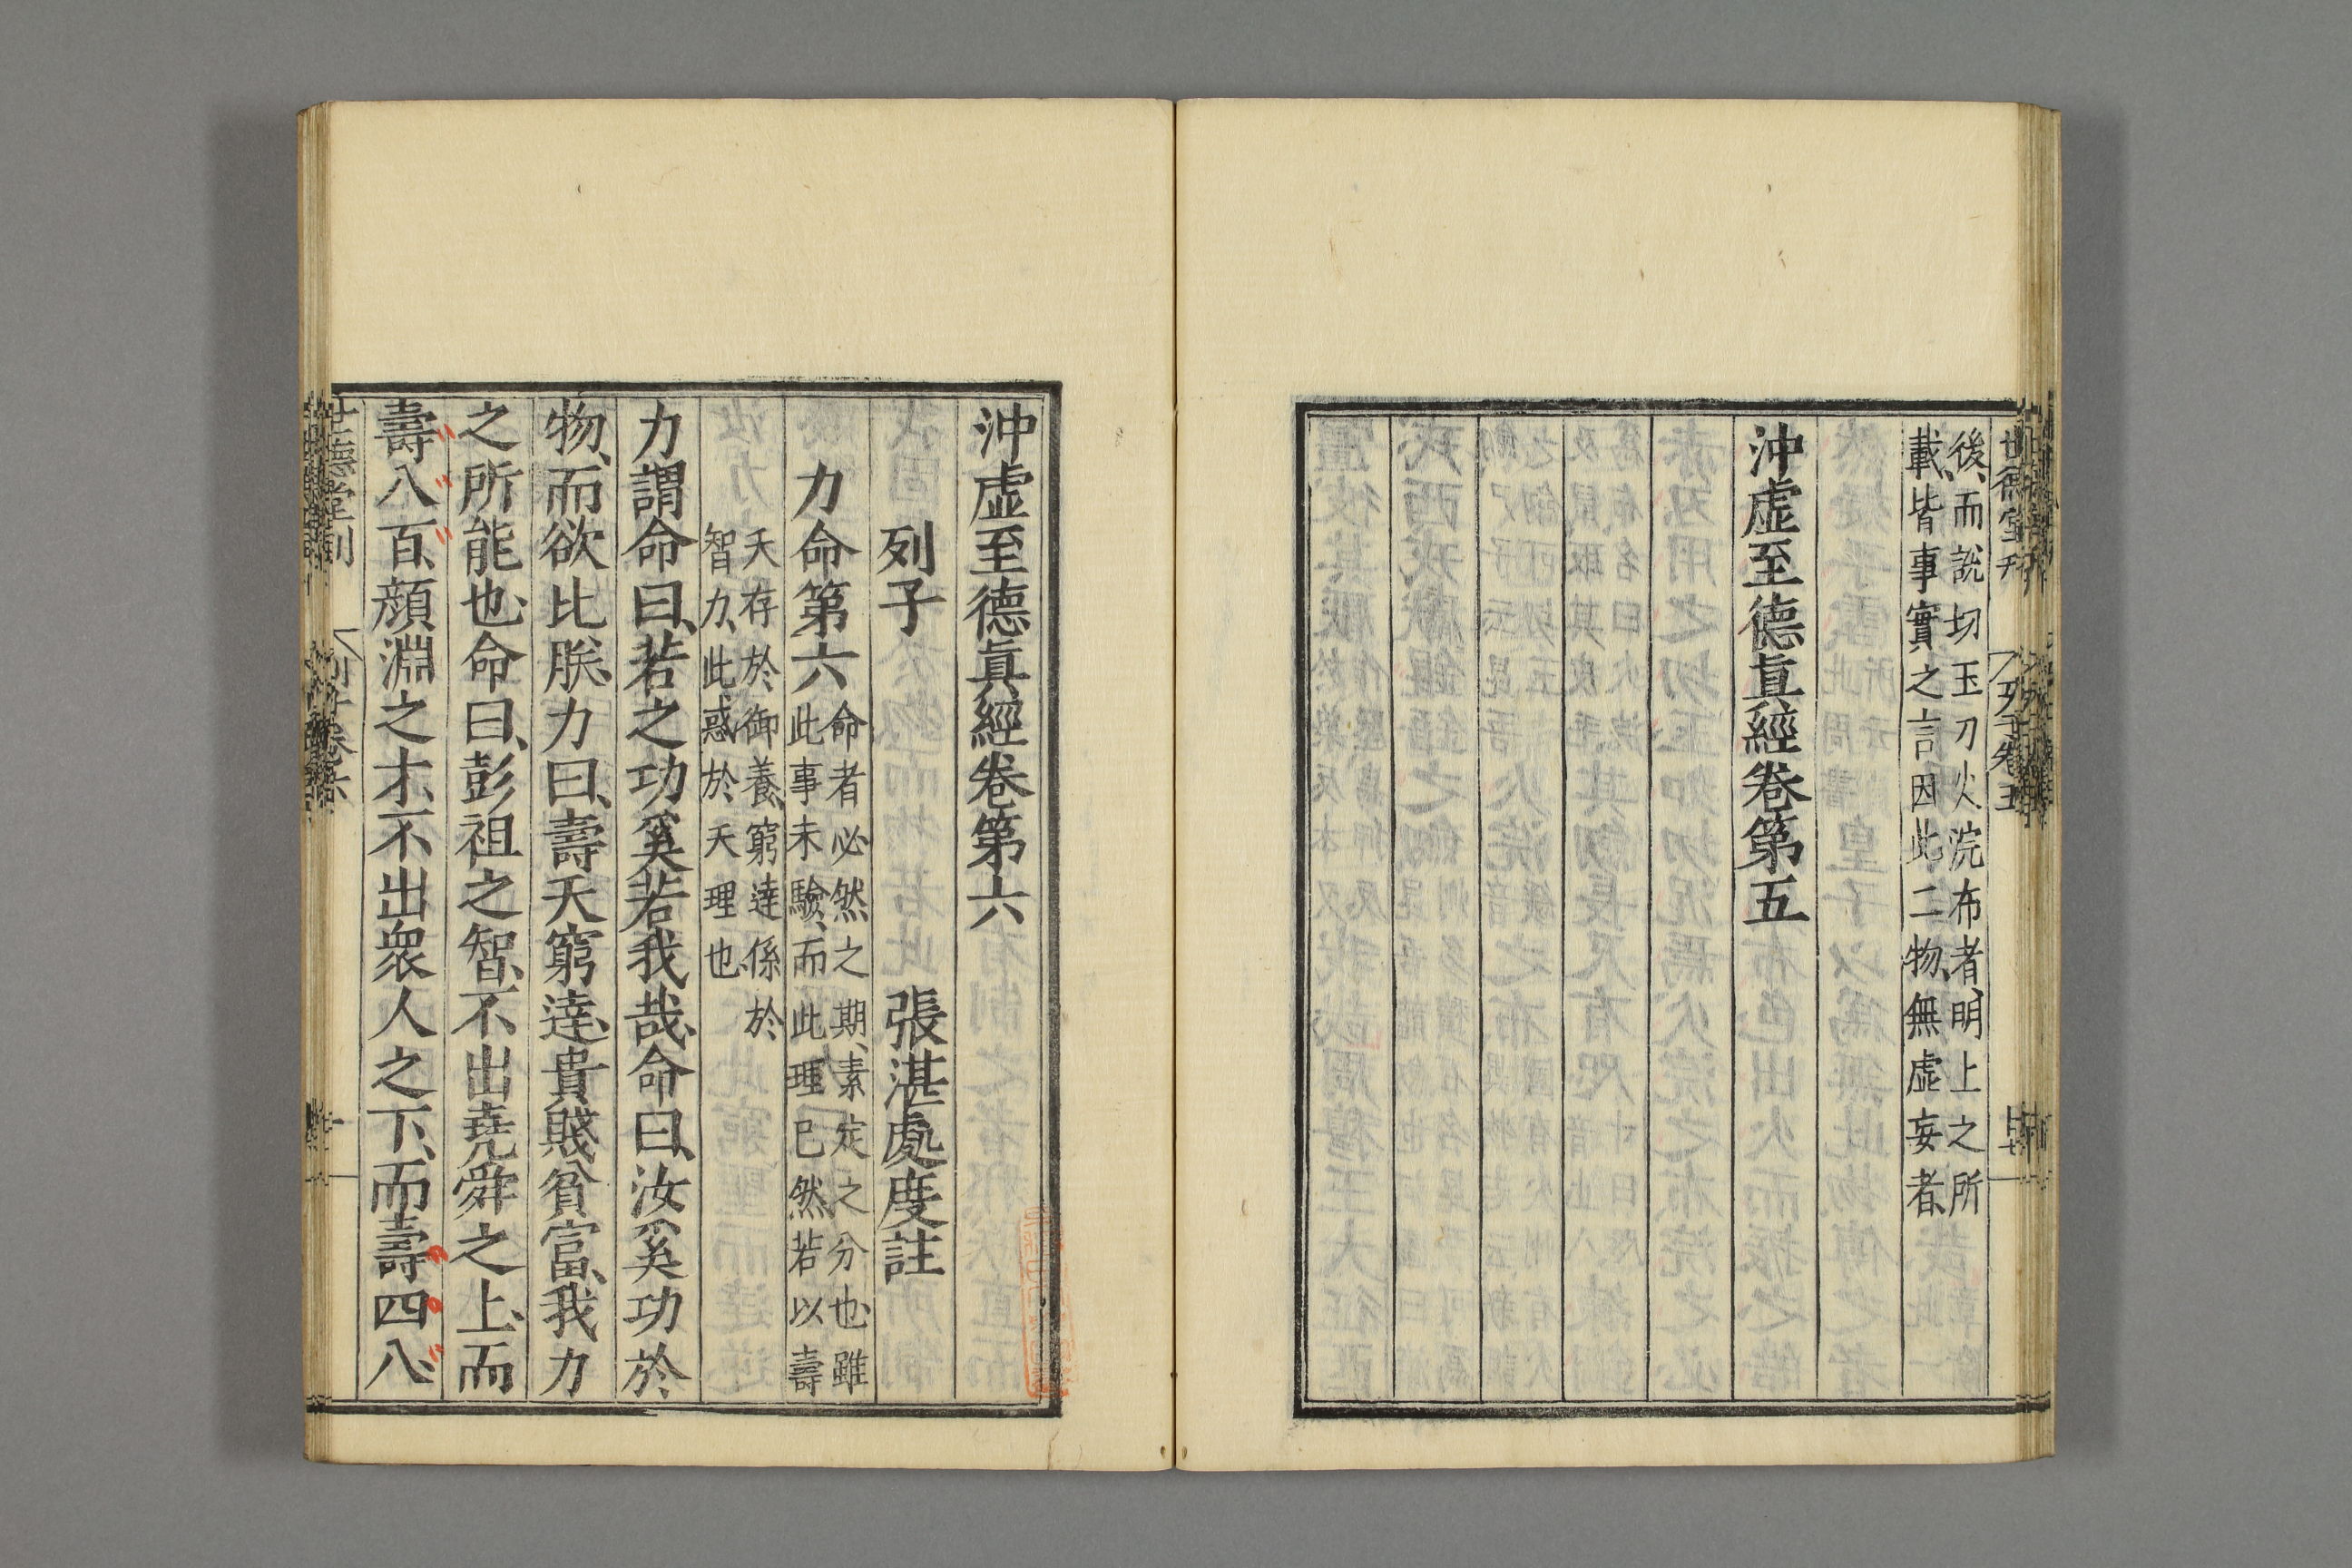 世德堂刊
列子卷五
後、而說切玉刀火浣布者、明上之所
載、皆事實之言因此二物、無虛妄者、
沖虛至德眞經卷第五
沖虛至德眞經卷第六
列子　張湛處度註
力命第六
命者必然之期、素定之分也、雖
此事未驗、而此理已然若以壽
夭存於御養、窮達係於
智力、此惑於天理也、
力謂命曰、若之功奚若我哉、命曰、汝奚功於
物、而欲比朕、力曰、壽夭窮達、貴賤貧富、我力
之所能也、命曰、彭祖之智、不出堯舜之上、而
壽八百、顏淵之才、不出衆人之下、而壽四八、
世德堂刊
列子卷六